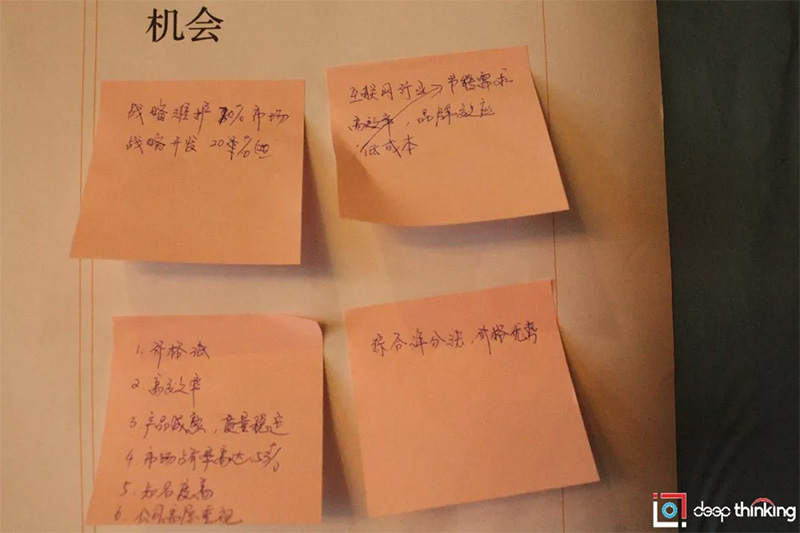 机会
战略维护 80% 市场
战略开发 20%
互联网行业→节能需求
高效率，品牌效应
低成本
1. 价格低
2. 高效率
3. 产品成熟，质量稳定
4. 市场占有率高达53%
5. 知名度高
6. 公司高层重视
综合评分法，价格优势
deep thinking